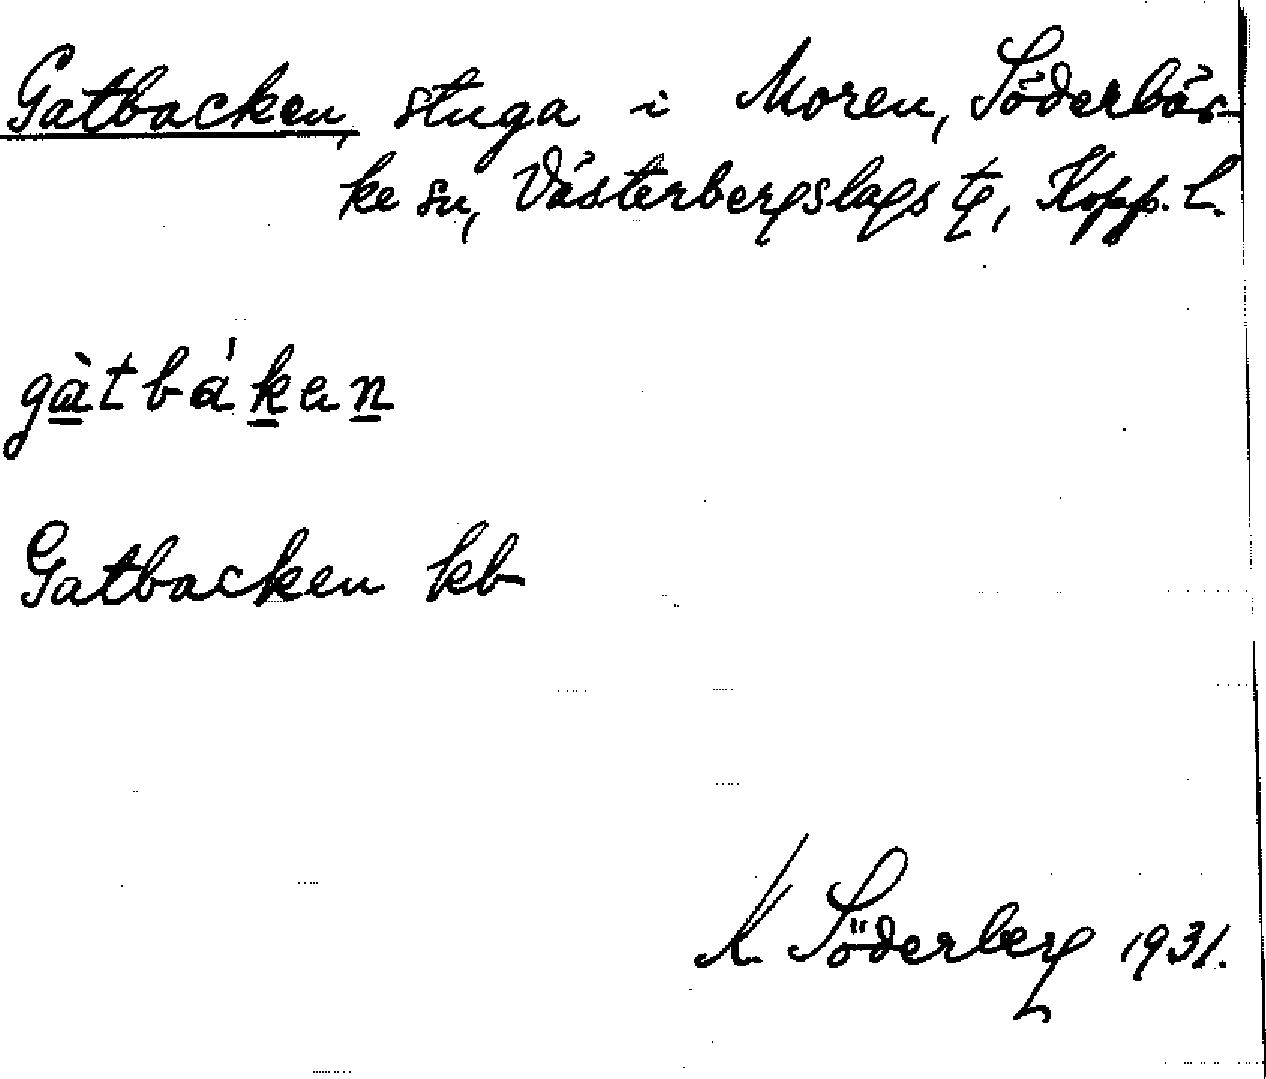 Gatbacken, stuga i Moren, Söderbär-
ke sn, Västerbergslags tg, Kopp. l.
gàtbáken
Gatbacken kb
K. Söderberg 1931.